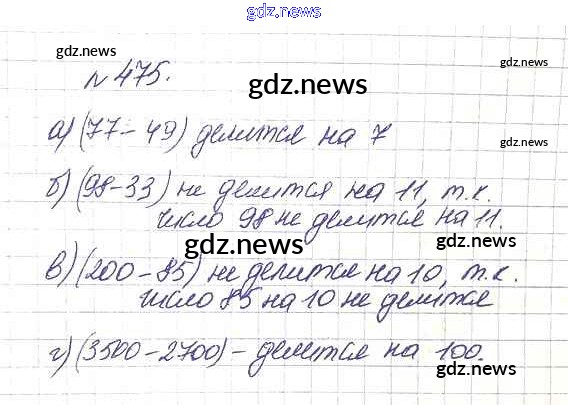 gdz.news
gdz.news
№ 475.
gdz.news
gdz.news
а) (77 - 49) делится на 7
gdz.news
б) (98-33) не делится на 11, т.к.
число 98 не делится на 11.
gdz.news
gdz.news
в) (200 - 85) не делится на 10, т.к.
число 85 на 10 не делится
г) (3500-2700) - делится на 100.
gdz.news
gdz.news